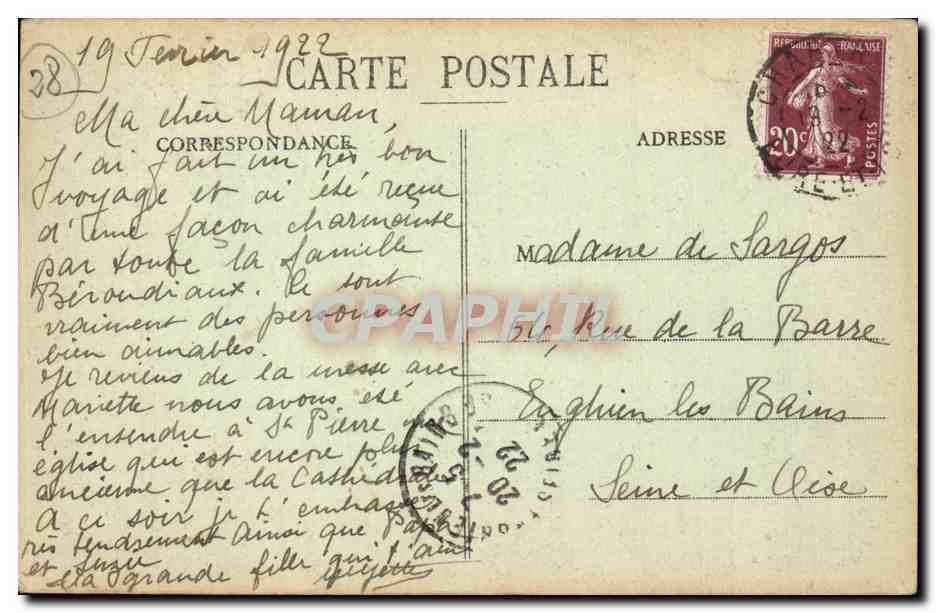 28
19 Fevrier 1922
CARTE POSTALE
CORRESPONDANCE
ADRESSE
Ma chère Maman,
J'ai fait un très bon
voyage et ai été reçue
d'une façon charmante
par toute la famille
Bérondiaux. Ce sont
vraiment des personnes
bien aimables.
Je reviens de la messe avec
Mariette nous avons été
l'entendre à St Pierre
église qui est encore plus
ancienne que la Cathédrale
A ce soir je t'embrasse
très tendrement ainsi que Papa
et Suzie
Ta grande fille qui t'aime
REPUBLIQUE FRANÇAISE
20c
POSTES
CHAR
19 -2
22
RE-ET
Madame de Sargos
64, Rue de la Barre
Enghien les Bains
Seine et Oise
CPAPHIL
LES BAINS
20 -2
22